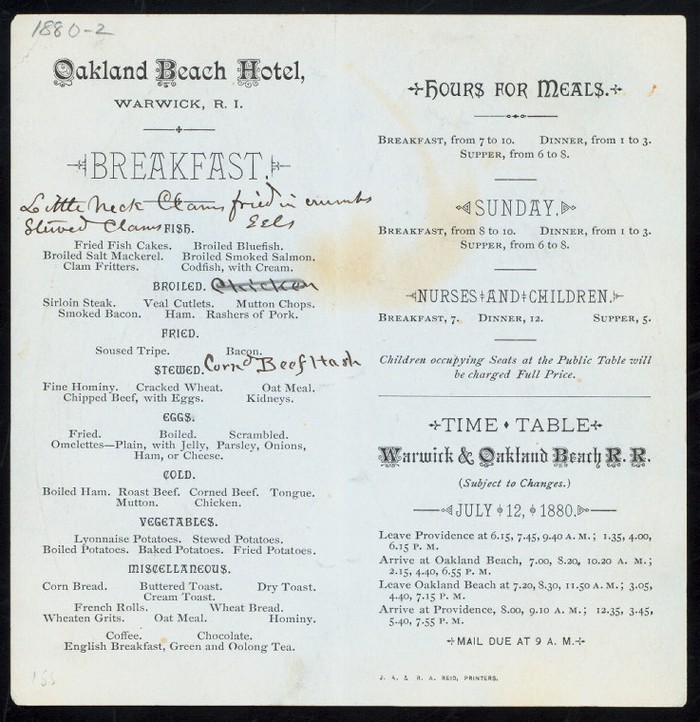 1880-2
Oakland Beach Hotel,
WARWICK, R. I.
BREAKFAST.
Little Neck Clams fried in crumbs
Stewed Clams Eels
FISH.
Fried Fish Cakes. Broiled Bluefish.
Broiled Salt Mackerel. Broiled Smoked Salmon.
Clam Fritters. Codfish, with Cream.
BROILED. Chicken
Sirloin Steak. Veal Cutlets. Mutton Chops.
Smoked Bacon. Ham. Rashers of Pork.
FRIED.
Soused Tripe. Bacon.
STEWED. Corn'd Beef Hash
Fine Hominy. Cracked Wheat. Oat Meal.
Chipped Beef, with Eggs. Kidneys.
EGGS.
Fried. Boiled. Scrambled.
Omelettes—Plain, with Jelly, Parsley, Onions,
Ham, or Cheese.
COLD.
Boiled Ham. Roast Beef. Corned Beef. Tongue.
Mutton. Chicken.
VEGETABLES.
Lyonnaise Potatoes. Stewed Potatoes.
Boiled Potatoes. Baked Potatoes. Fried Potatoes.
MISCELLANEOUS.
Corn Bread. Buttered Toast. Dry Toast.
Cream Toast.
French Rolls. Wheat Bread.
Wheaten Grits. Oat Meal. Hominy.
Coffee. Chocolate.
English Breakfast, Green and Oolong Tea.
HOURS FOR MEALS.
BREAKFAST, from 7 to 10. DINNER, from 1 to 3.
SUPPER, from 6 to 8.
SUNDAY.
BREAKFAST, from 8 to 10. DINNER, from 1 to 3.
SUPPER, from 6 to 8.
NURSES AND CHILDREN.
BREAKFAST, 7. DINNER, 12. SUPPER, 5.
Children occupying Seats at the Public Table will
be charged Full Price.
TIME TABLE
Warwick & Oakland Beach R. R.
(Subject to Changes.)
JULY 12, 1880.
Leave Providence at 6.15, 7.45, 9.40 A. M.; 1.35, 4.00,
6.15 P. M.
Arrive at Oakland Beach, 7.00, 8.20, 10.20 A. M.;
2.15, 4.40, 6.55 P. M.
Leave Oakland Beach at 7.20, 8.30, 11.50 A. M.; 3.05,
4.40, 7.15 P. M.
Arrive at Providence, 8.00, 9.10 A. M.; 12.35, 3.45,
5.40, 7.55 P. M.
MAIL DUE AT 9 A. M.
J. A. & R. A. REID, PRINTERS.